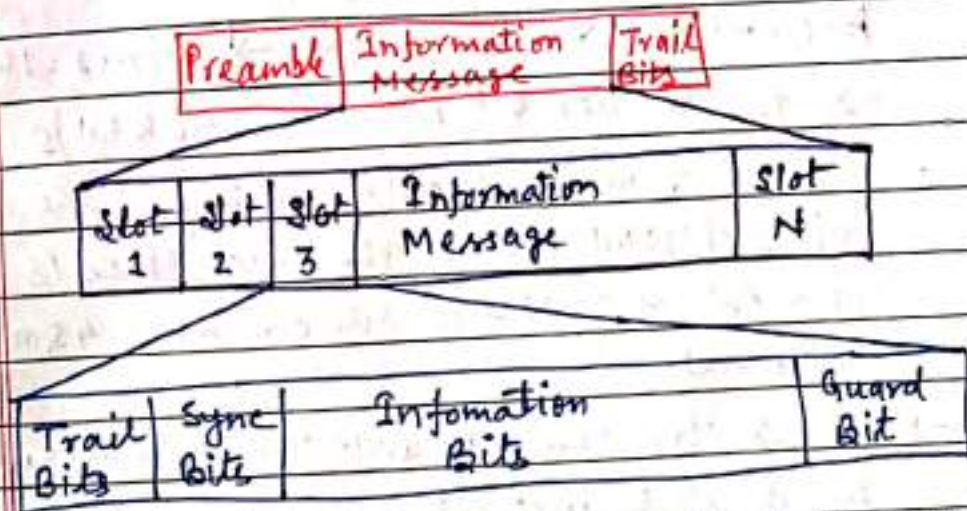 Preamble
Information
Message
Trail
Bits
Slot
1
Slot
2
Slot
3
Information
Message
Slot
N
Trail
Bits
Sync
Bits
Infomation
Bits
Guard
Bit